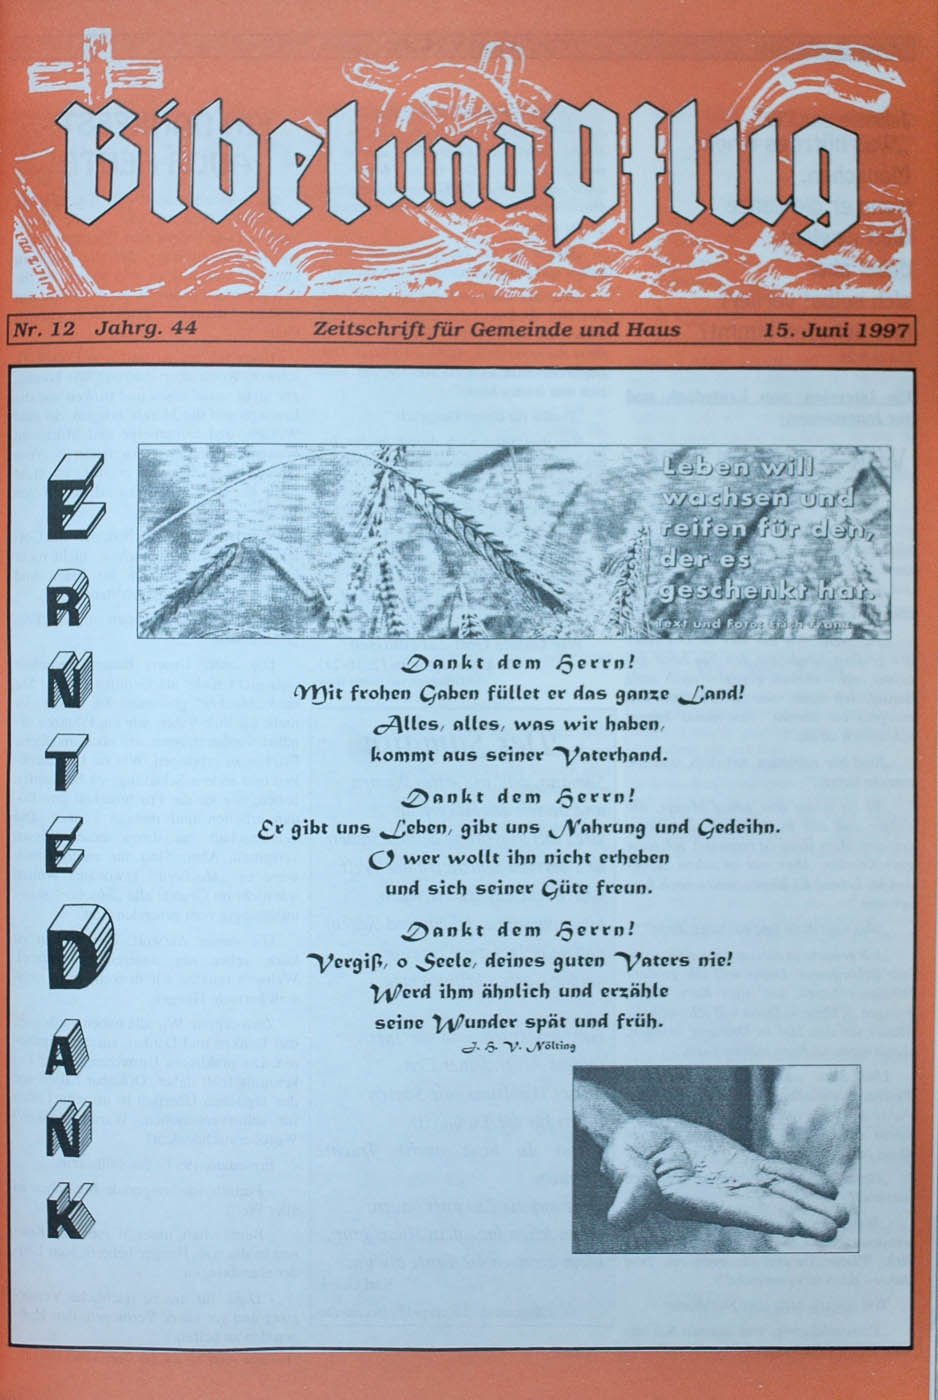 Bibel und Pflug
Nr. 12 Jahrg. 44 Zeitschrift für Gemeinde und Haus 15. Juni 1997
ERNTEDANK
Leben will
wachsen und
reifen für den,
der es
geschenkt hat.
Text und Foto: Erich Franz
Dankt dem Herrn!
Mit frohen Gaben füllet er das ganze Land!
Alles, alles, was wir haben,
kommt aus seiner Vaterhand.
Dankt dem Herrn!
Er gibt uns Leben, gibt uns Nahrung und Gedeihn.
O wer wollt ihn nicht erheben
und sich seiner Güte freun.
Dankt dem Herrn!
Vergiß, o Seele, deines guten Vaters nie!
Werd ihm ähnlich und erzähle
seine Wunder spät und früh.
J. H. V. Nölting